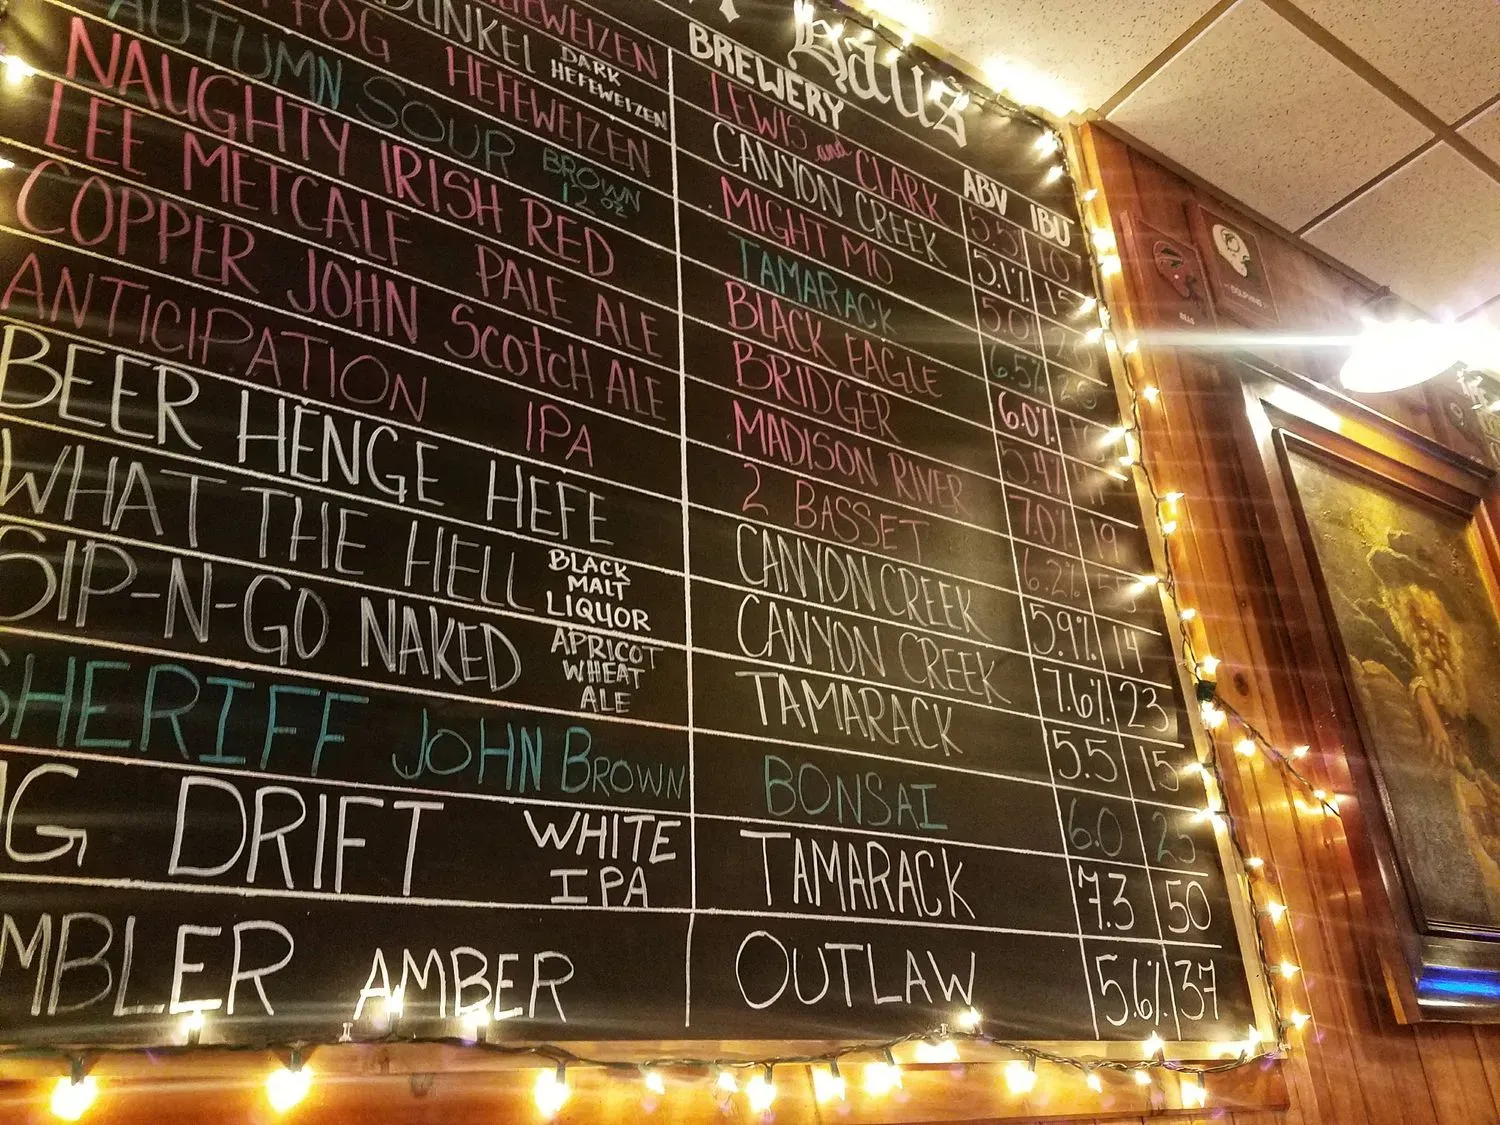 Bauz
BREWERY ABV IBU
HEFEWEIZEN LEWIS and CLARK
DUNKEL DARK HEFEWEIZEN CANYON CREEK 5.1% 15
FOG HEFEWEIZEN MIGHT MO 5.0%
AUTUMN SOUR BROWN 12 oz TAMARACK 6.5%
NAUGHTY IRISH RED BLACK EAGLE 6.0%
LEE METCALF PALE ALE BRIDGER 5.4%
COPPER JOHN SCOTCH ALE MADISON RIVER 7.0% 19
ANTICIPATION IPA 2 BASSET 6.2%
BEER HENGE HEFE CANYON CREEK 5.9% 14
WHAT THE HELL BLACK MALT LIQUOR CANYON CREEK 7.6% 23
SIP-N-GO NAKED APRICOT WHEAT ALE TAMARACK 5.5 15
SHERIFF JOHN BROWN BONSAI 6.0 25
G DRIFT WHITE IPA TAMARACK 7.3 50
MBLER AMBER OUTLAW 5.6% 37
BILLS
DOLPHINS